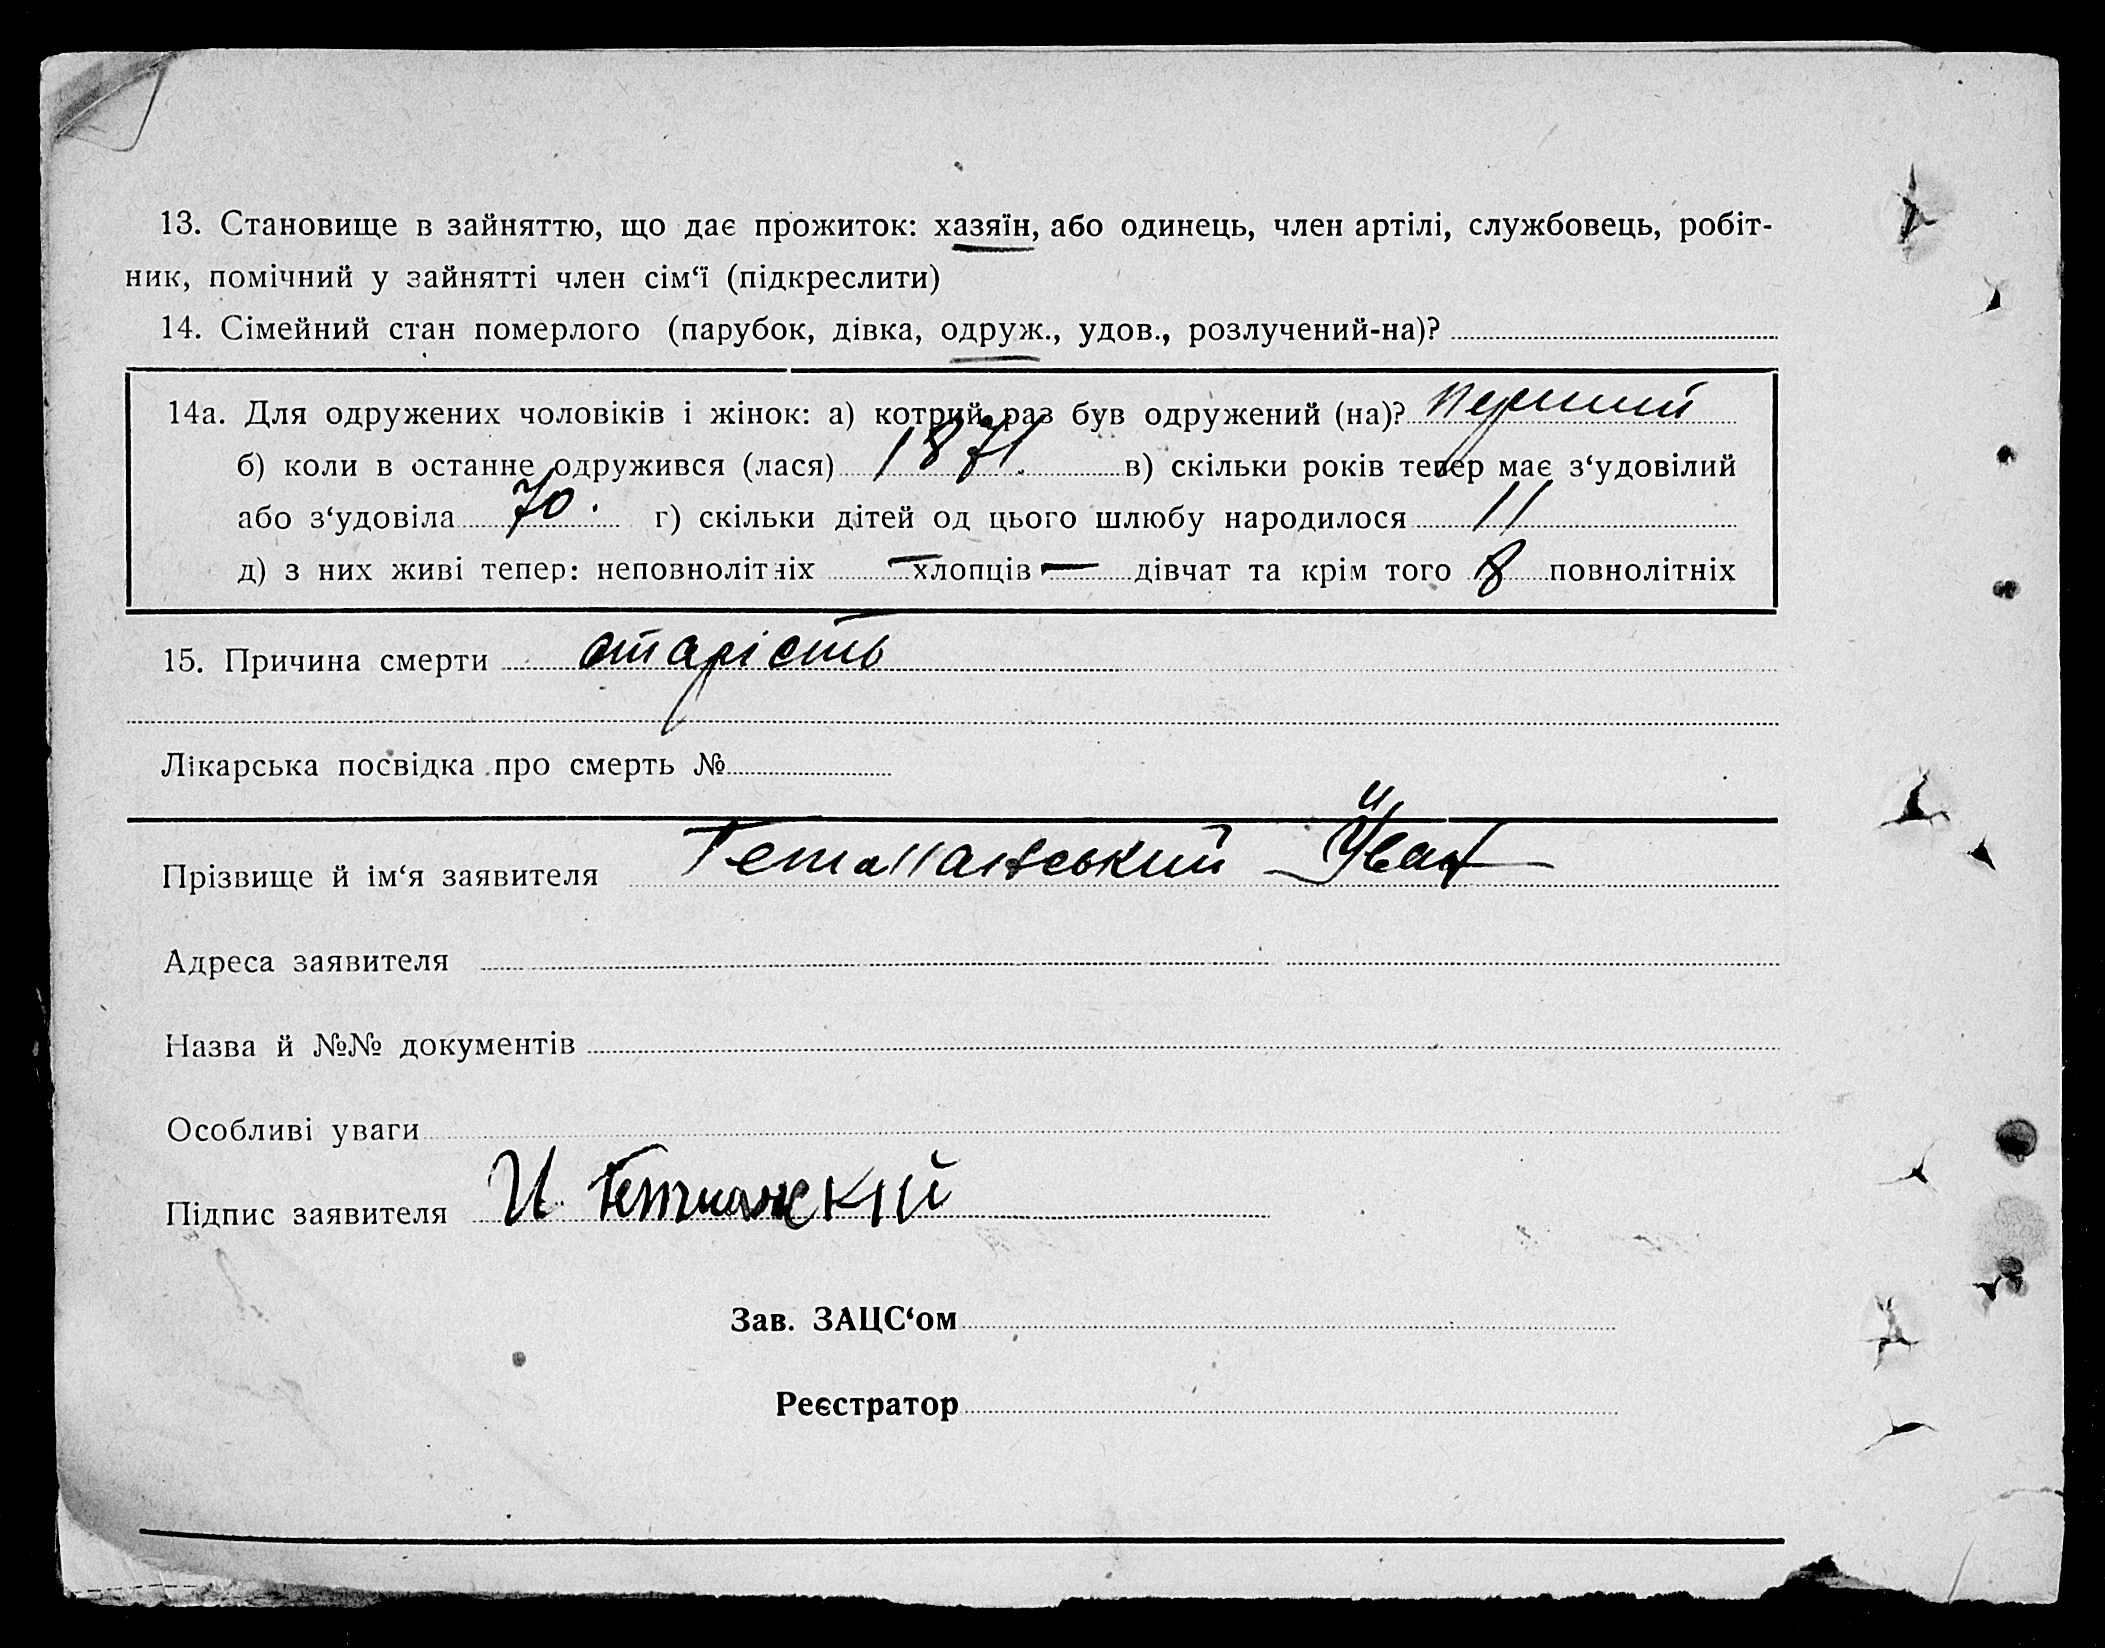 13. Становище в зайняттю, що дає прожиток: хазяїн, або одинець, член артілі, службовець, робіт-
ник, помічний у зайнятті член сім‘ї (підкреслити)
14. Сімейний стан померлого (парубок, дівка, одруж., удов., розлучений-на)?
14а. Для одружених чоловіків і жінок: а) котрий раз був одружений (на)? перший
б) коли в останнє одружився (лася) 1871. в) скільки років тепер має з‘удовілий
або з‘удовіла 70. г) скільки дітей од цього шлюбу народилося 11
д) з них живі тепер: неповнолітніх — хлопців — дівчат та крім того 8 повнолітніх
15. Причина смерти старість
Лікарська посвідка про смерть №
Прізвище й ім‘я заявителя Гетманський Йван
Адреса заявителя
Назва й №№ документів
Особливі уваги
Підпис заявителя И
Зав. ЗАЦС‘ом
Реєстратор